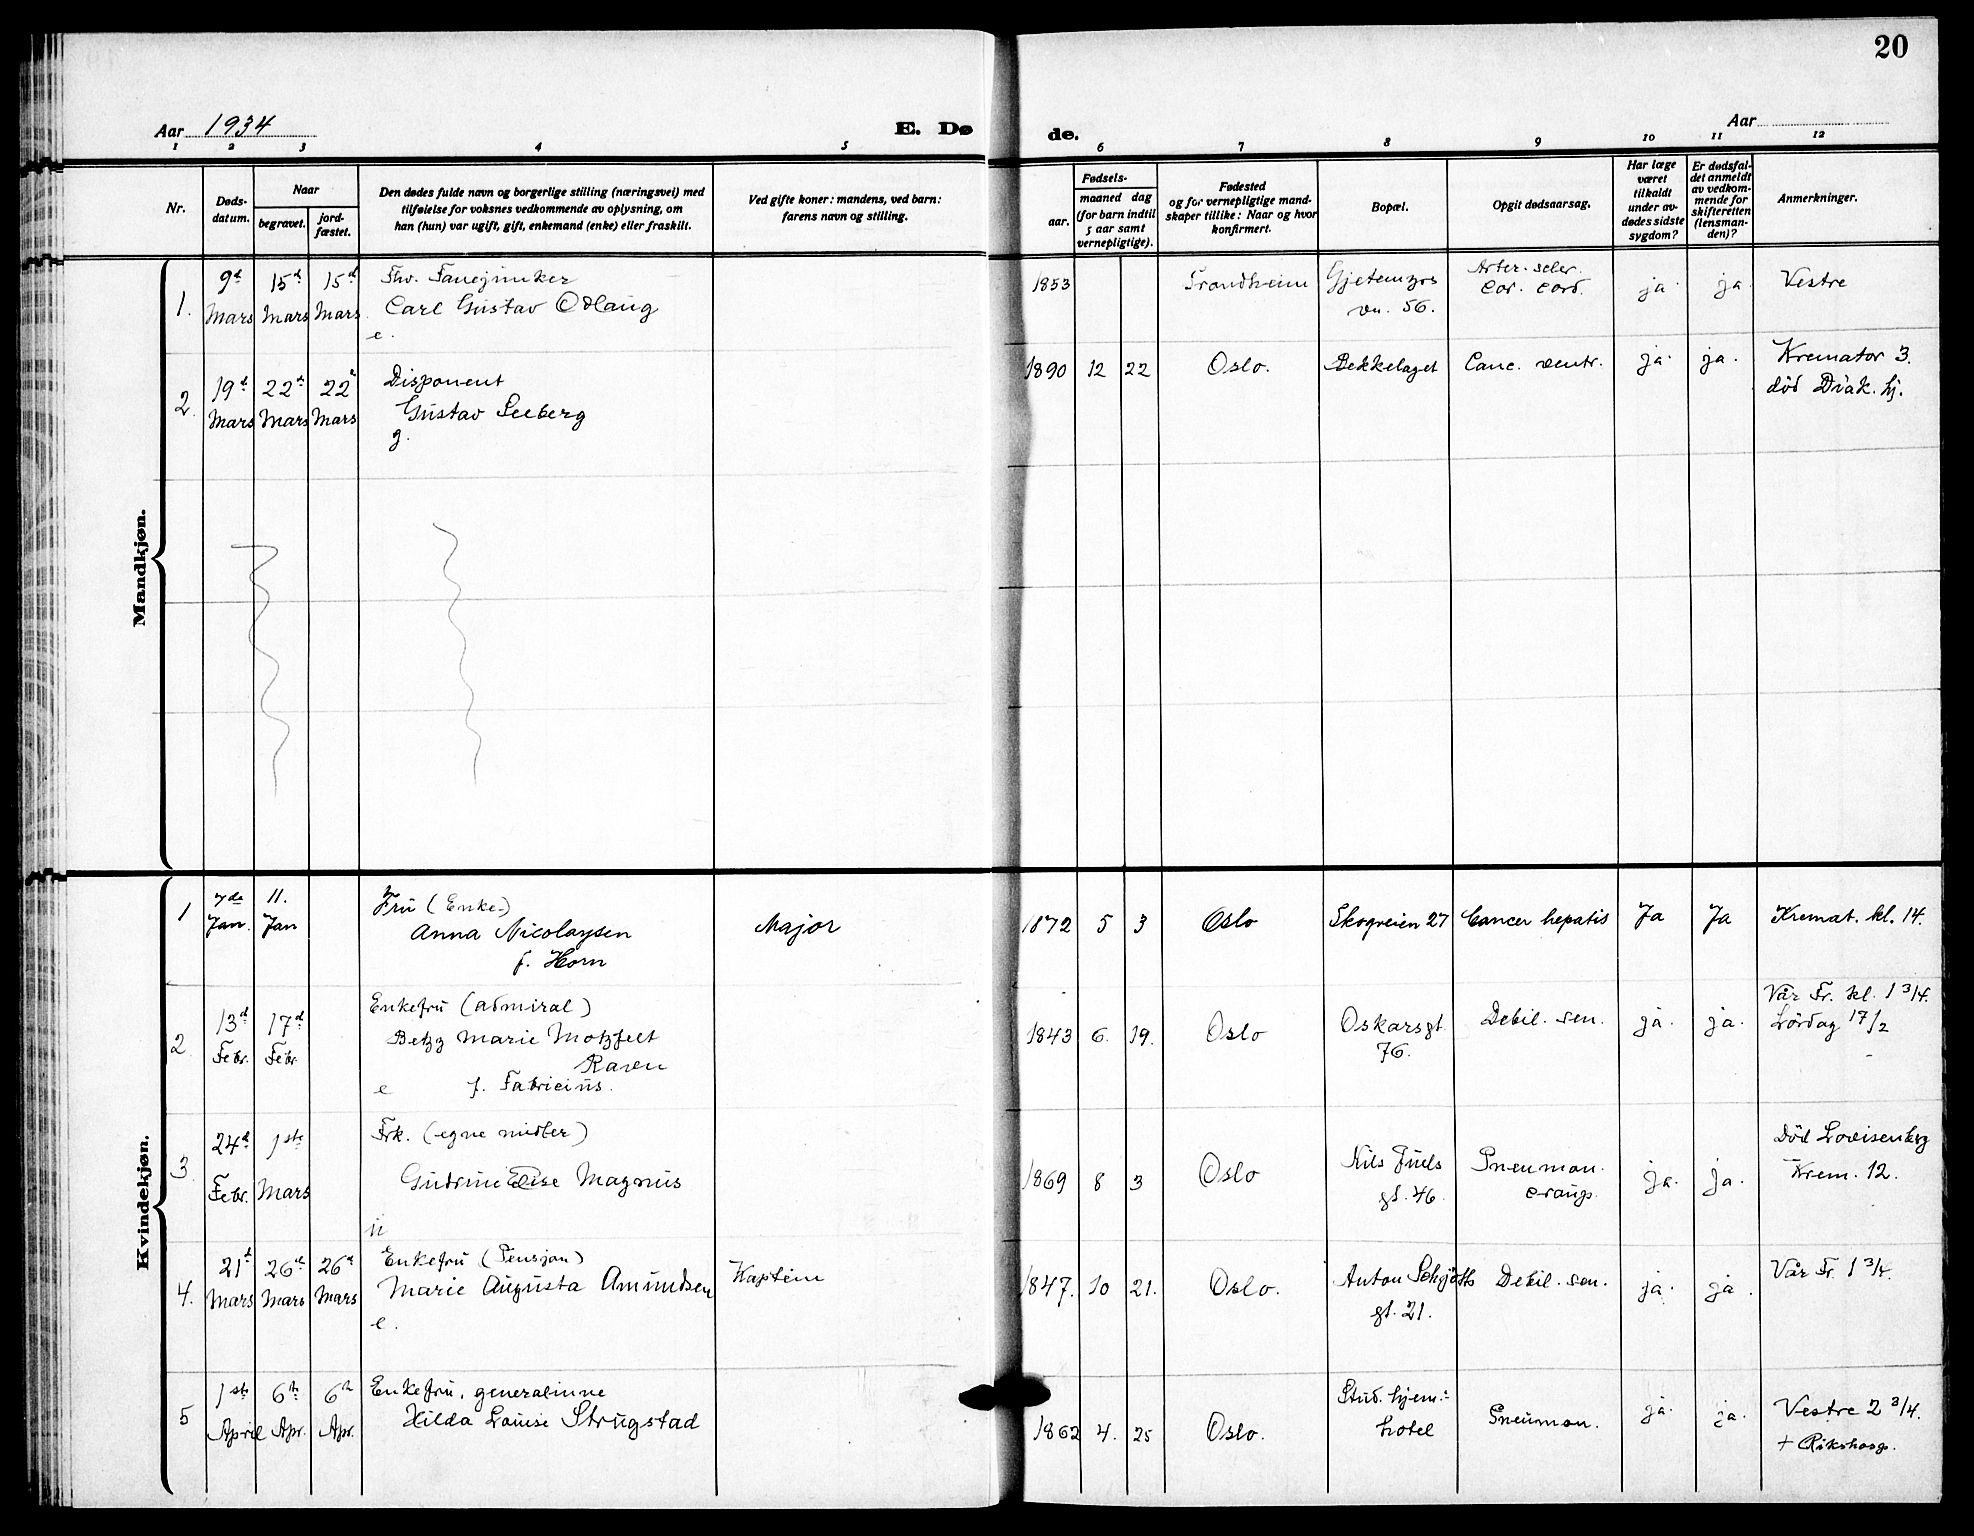 20
Aar 1934
E. Dø
de.
Aar
1 2 3 4 5 6 7 8 9 10 11 12
Nr.
Døds-
datum.
Naar
begravet.
jord-
fæstet.
Den dødes fulde navn og borgerlige stilling (næringsvei) med
tilføielse for voksnes vedkommende av oplysning, om
han (hun) var ugift, gift, enkemand (enke) eller fraskilt.
Ved gifte koner: mandens, ved barn:
farens navn og stilling.
Fødsels-
aar.
maaned dag
(for barn indtil
5 aar samt
vernepligtige).
Fødested
og for vernepligtige mand-
skaper tillike: Naar og hvor
konfirmert.
Bopæl.
Opgit dødsaarsag.
Har læge
været
tilkaldt
under av-
dødes sidste
sygdom?
Er dødsfal-
det anmeldt
av vedkom-
mende for
skifteretten
(lensman-
den)?
Anmerkninger.
Mandkjøn.
1.
9d
Mars
15d
Mars
15d
Mars
Fhv. Fanejunker
Carl Gustav Odlaug
e.
1853
Trondheim
Gjetemyrs
vn. 56.
Arter. scler.
Cor. cord.
ja.
ja.
Vestre
2.
19d
Mars
22d
Mars
22d
Mars
Disponent
Gustav Seeberg
g.
1890 12 22
Oslo.
Bekkelaget
Canc. ventr.
ja.
ja.
Kremator 3.
död Diak. hj.
Kvindekjøn.
1
7de
Jan.
11.
Jan
Fru (Enke-)
Anna Nicolaysen
f. Horn
Major
1872 5 3
Oslo
Skogveien 27
Cancer hepatis
Ja
Ja
Kremat. kl. 14.
2
13d
Febr.
17d
Febr.
Enkefru (admiral)
Betzy Marie Motzfelt
Raven
e f. Fabricius.
1843 6. 19.
Oslo
Oskarsgt.
76.
Debil. sen.
ja.
ja.
Vår Fr. kl. 1 3/4.
Lördag 17/2
3
24d
Febr.
1ste
Mars
Frk. (egne midler)
Gudrun Elise Magnus
u
1869 8 3
Oslo
Nils Juels
gt. 46.
Pneumon.
ja.
ja.
Död Lovisenberg
Krem. 12.
4.
21d
Mars
26d
Mars
26d
Mars
Enkefru (Pensjon)
Marie Augusta Amundsen
e.
Kaptein
1847. 10 21.
Oslo.
Anton Schjøths
gt. 21.
Debil. sen.
ja.
ja.
Vår Fr. 1 3/4.
5
1ste
April
6te
Apr.
6te
Apr.
Enkefru, generalinne
Hilda Louise Strugstad
1862 4. 25
Oslo.
Stud. hjem.
hotel
Pneumon.
ja.
ja.
Vestre 2 3/4.
+ Rikshosp.